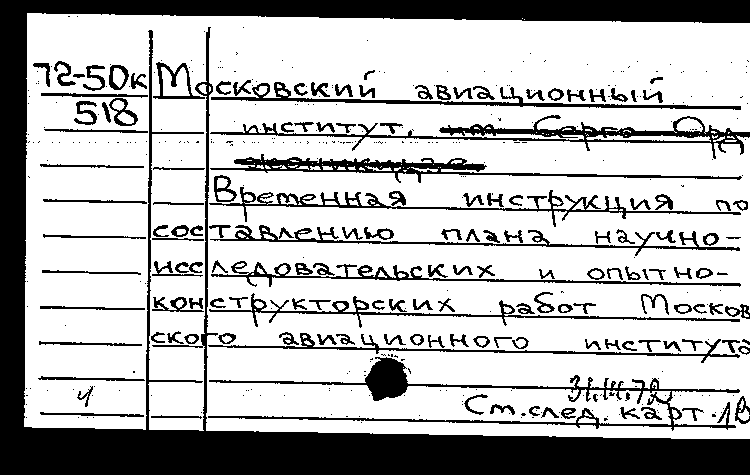 72-50к Московский авиационный
518 институт. им Серго Орд
жоникидзе
Временная инструкция по
составлению плана научно-
исследовательских и опытно-
конструкторских работ Москов
ского авиационного института
См. след. карт.